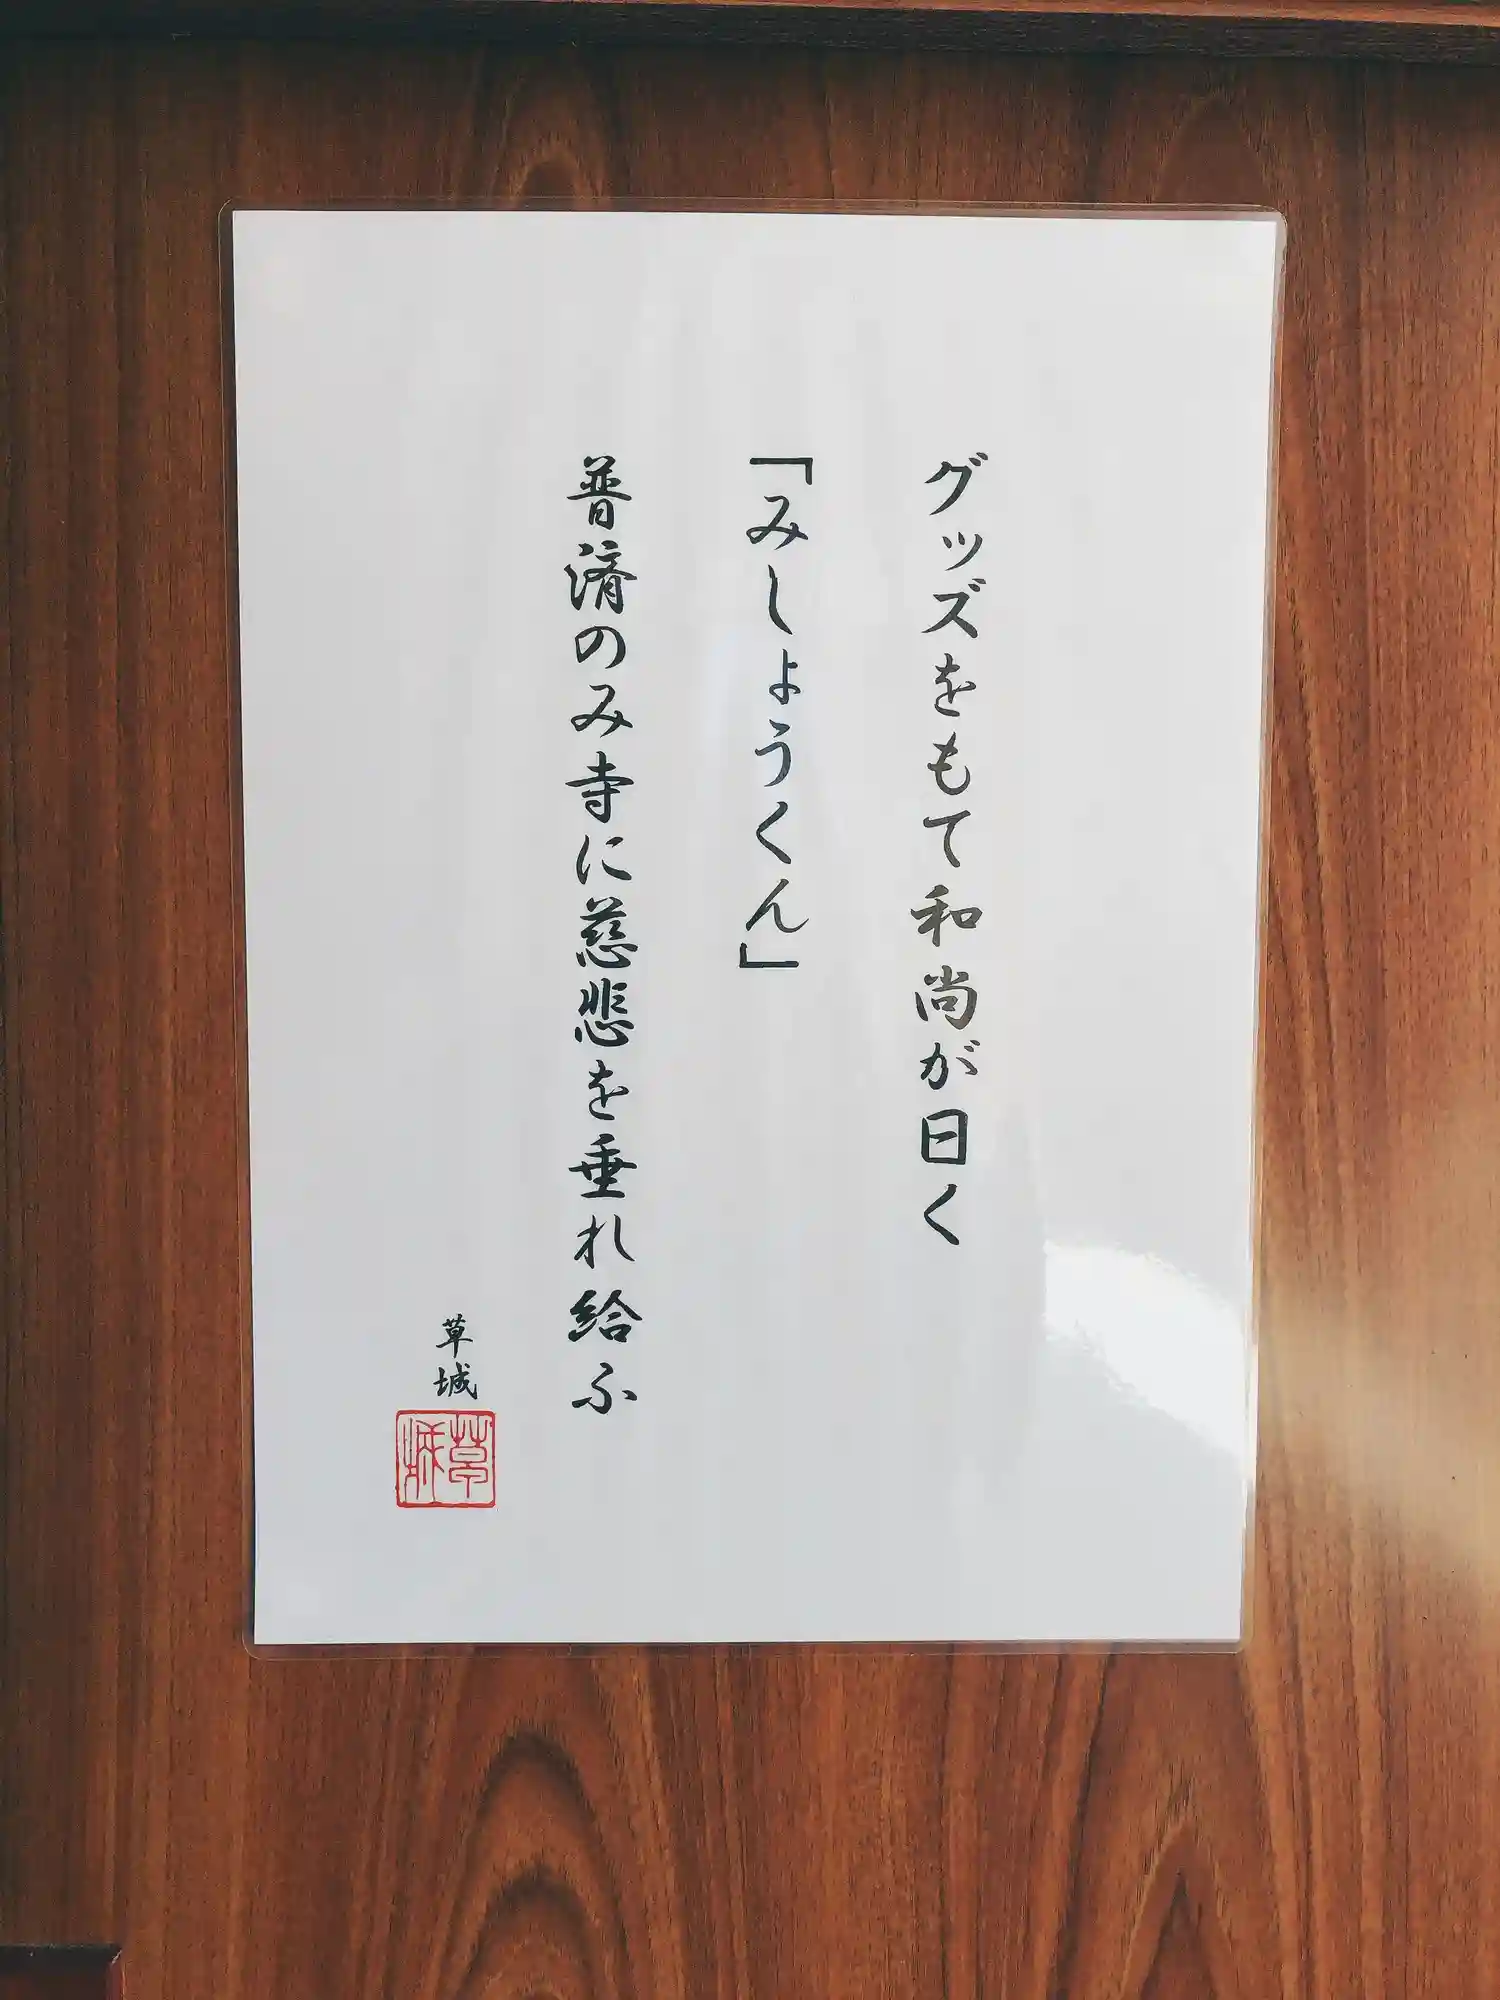 グッズをもて和尚が曰く
「みしょうくん」
普済のみ寺に慈悲を垂れ給ふ
草城
草城